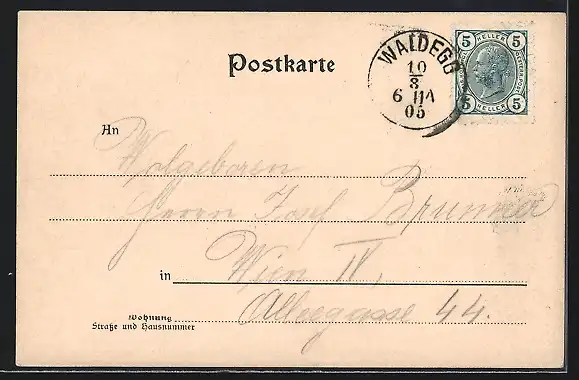 Postkarte
WALDEGG
10
8
6 IIA
05
5 HELLER 5
5 HELLER 5
An
Wolgeboren
Herrn Josef Brunner
in Wien IV,
Wohnung
Straße und Hausnummer
Alleegasse 44.